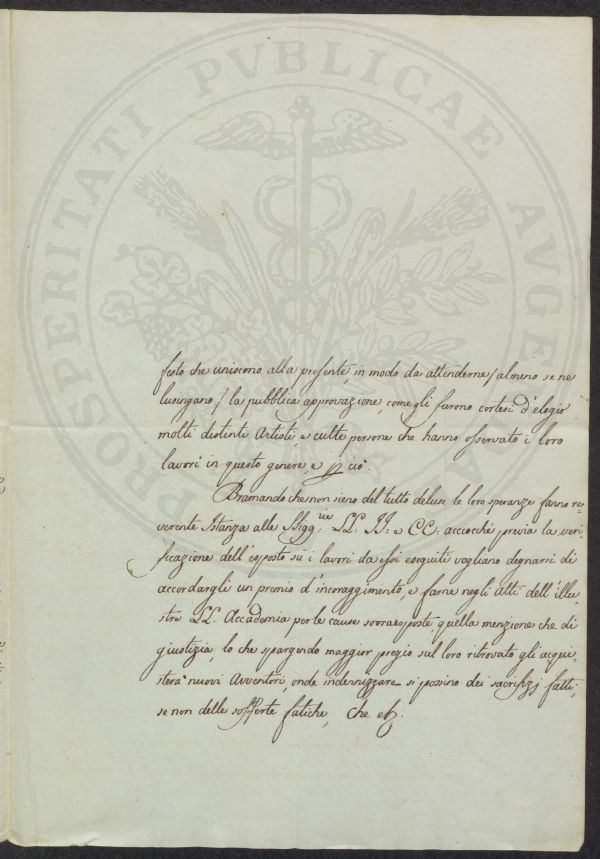 PROSPERITATI PVBLICAE AVGENDAE
festo che uniscono alla presente, in modo da attenderne / almeno se ne
lusingano / la pubblica approvazione, come gli furono cortesi d'elogio
molti distinti Artisti, e culte persone che hanno osservato i loro
lavori in questo genere, e p ciò.
Bramando che non sieno del tutto deluse le loro speranze fanno re=
verente Istanza alle SSigg:rie LL: II: e CC: acciocchè previa la veri=
ficazione dell'esposto su i lavori da essi eseguiti vogliano degnarsi di
accordargli un premio d'incoraggimento, e farne negli Atti dell'illu=
stre LL. Accademia per le cause sovraesposte, quella menzione che di
giustizia, lo che spargendo maggior pregio sul loro ritrovato gli acqui=
sterà nuovi Avventori, onde indennizzare si possino dei sacrifizj fatti,
se non delle sofferte fatiche, Che etc: